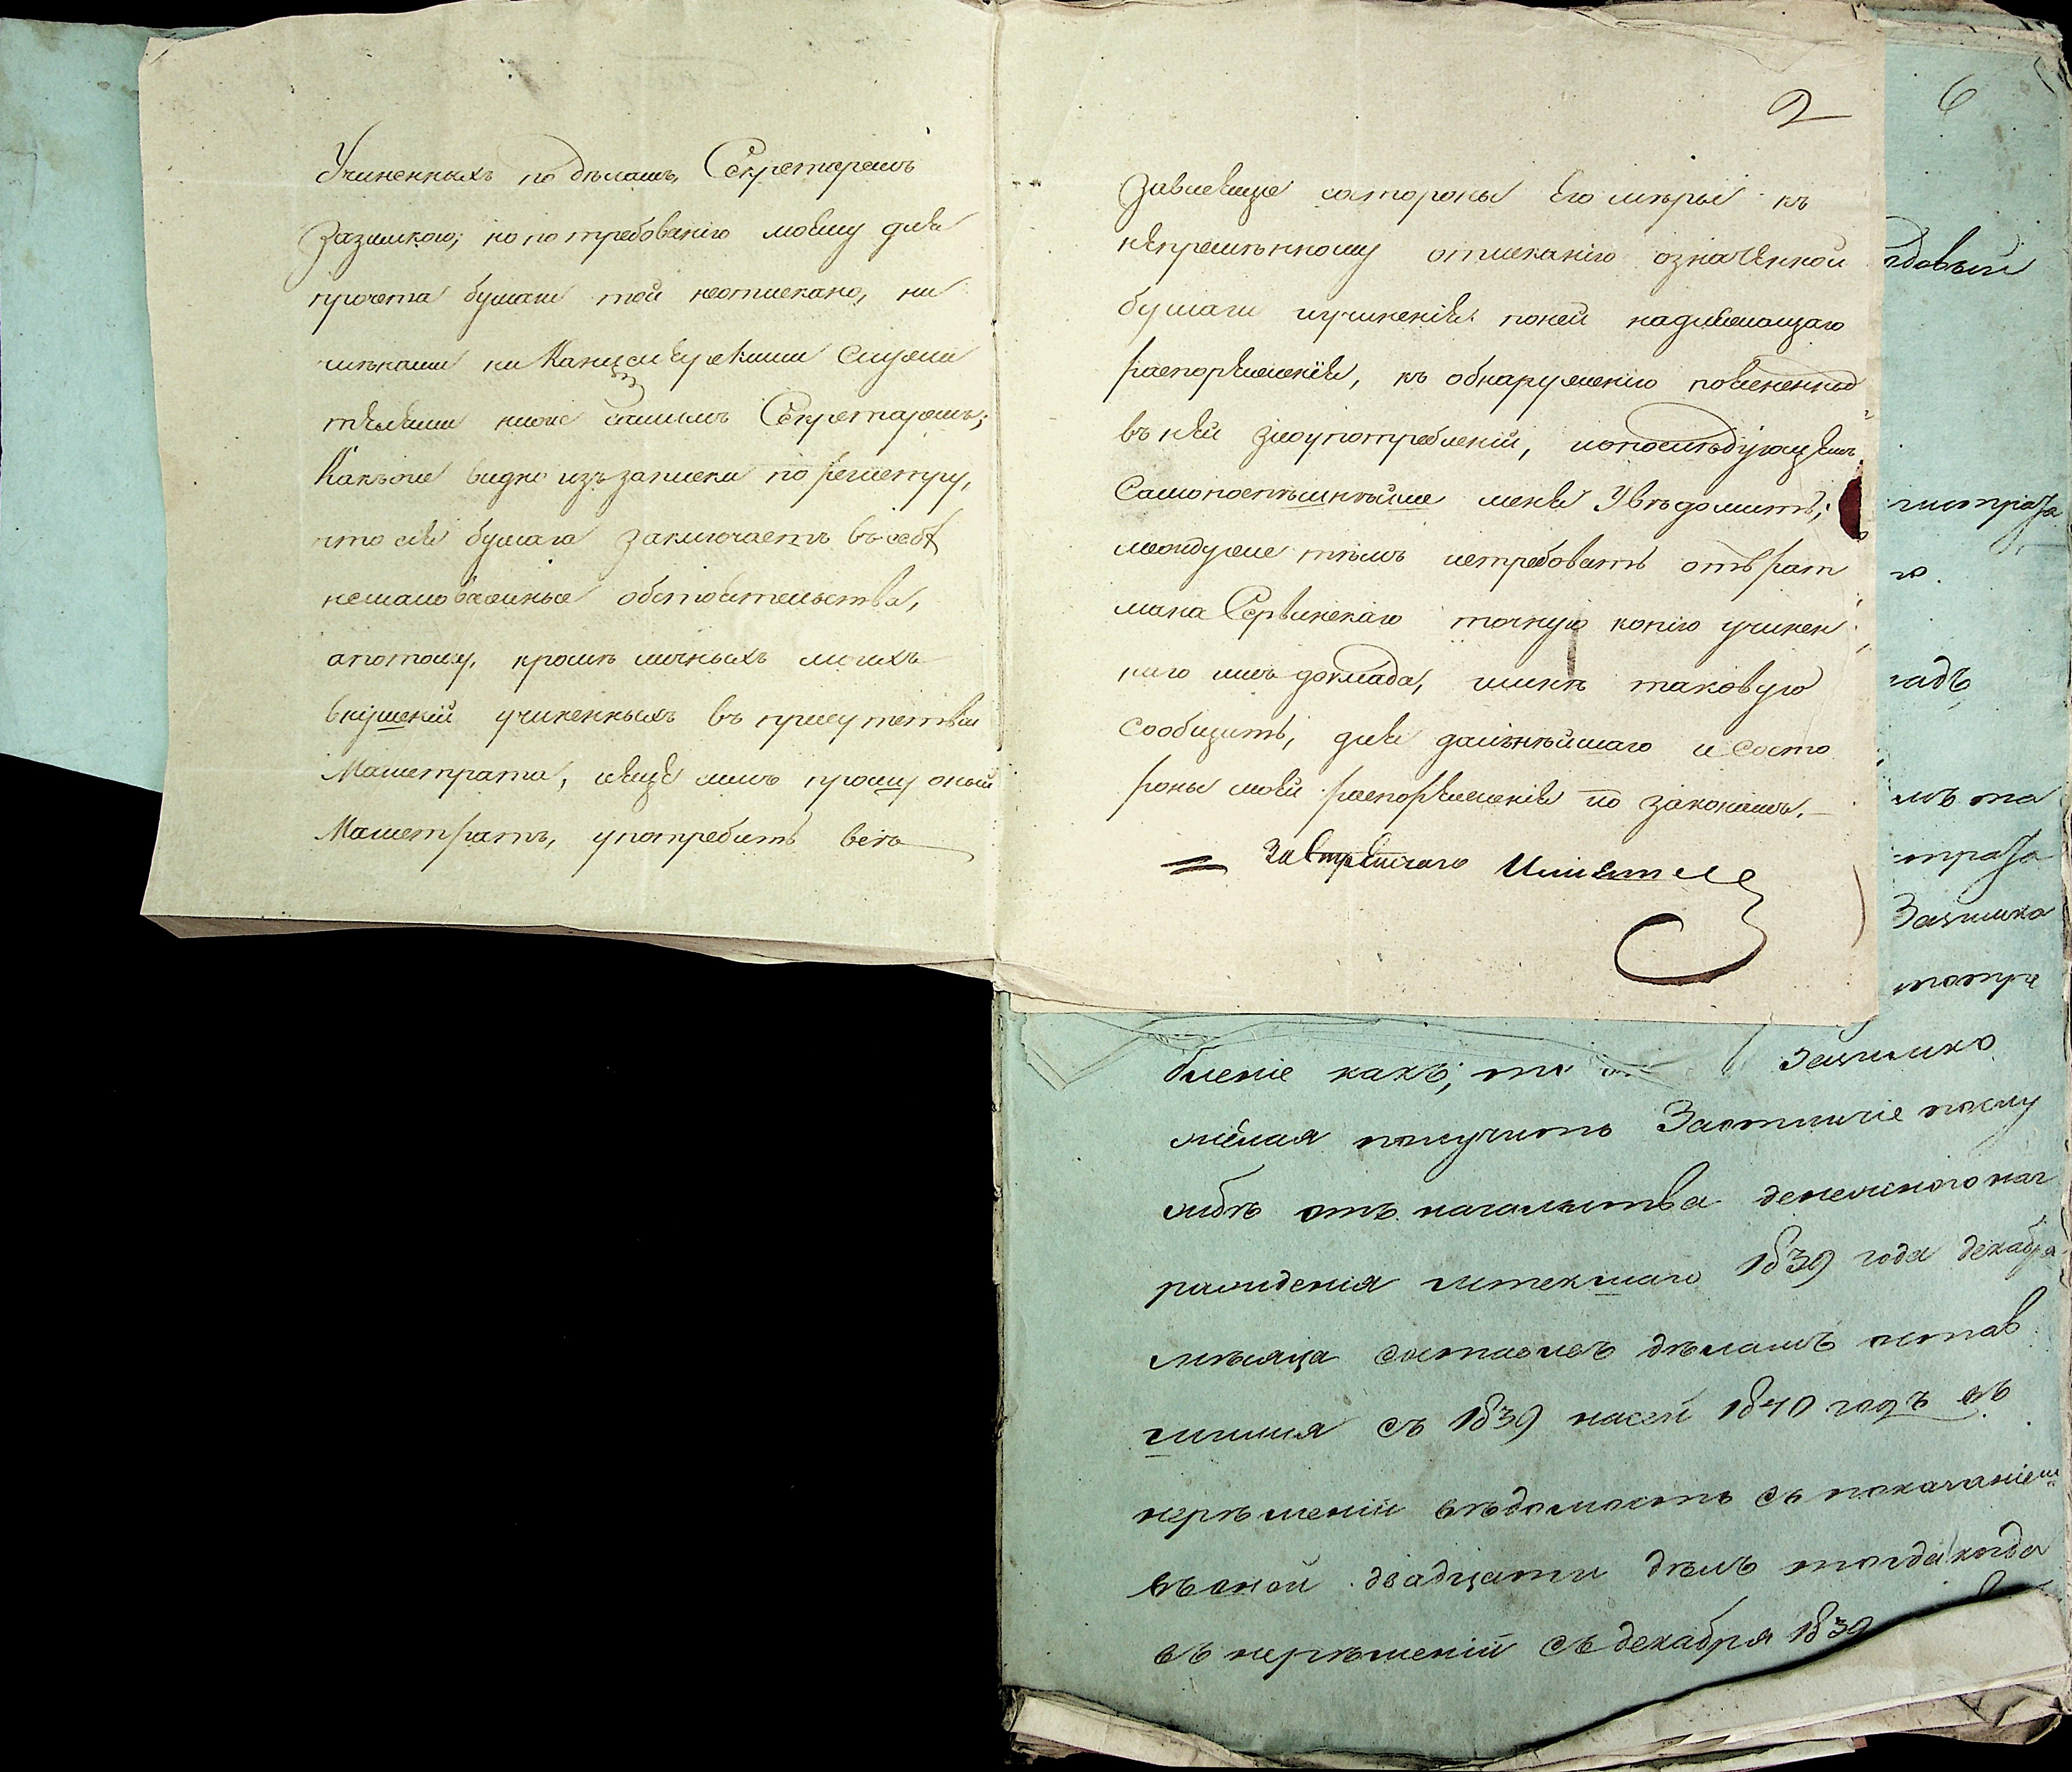 Учиненныхъ по дѣламъ, Секретаремъ
Зазимкою; но по требованію моему для
прочета бумаги той неотискано, ни
чинами ни Канцелярскими Служи
телями ниже самимъ Секретаремъ;
Какъ же видно изъ записки по регистру,
что сія бумага заключаетъ въ себѣ
немаловажныя обстоятельства,
а потому, кромѣ личныхъ моихъ
внушеній учиненныхъ въ присутствіи
Магистрата, еще симъ прошу оный
Магистратъ, употребить всѣ
2
Зависящие состороны Его мѣры къ
непремѣнному отисканію означенной
бумаги и учиненія поней надлежащаго
распоряженія, къ обнаруженію поясненныхъ
въ ней злоупотребленій, ипопослѣдующемъ
Самопоспѣшнѣйше меня Увѣдомить;
междуже тѣмъ истребовать отъ рат
мана Сервинскаго точную копію учинен
наго имъ доклада, и мнѣ таковую
сообщить, для далѣнѣйшаго и состо
роны моей распоряженія по законамъ.
6
довый
гистрата
го.
мъ та
страта
Зазимко
потре
бленіе какъ, то Зазимко
желая получить Заотличіе послу
жбѣ отъ начальства денежного наг
раждения истекшаго 1839 года декабря
мѣсяца составлѣ дѣламъ остав
шимся съ 1839 насей 1840 годъ въ
нерѣшеніи вѣдомость съ показаніемъ
въ оной двадцати дѣлъ тогда когда
въ нерѣшеніи съ декабря 1839